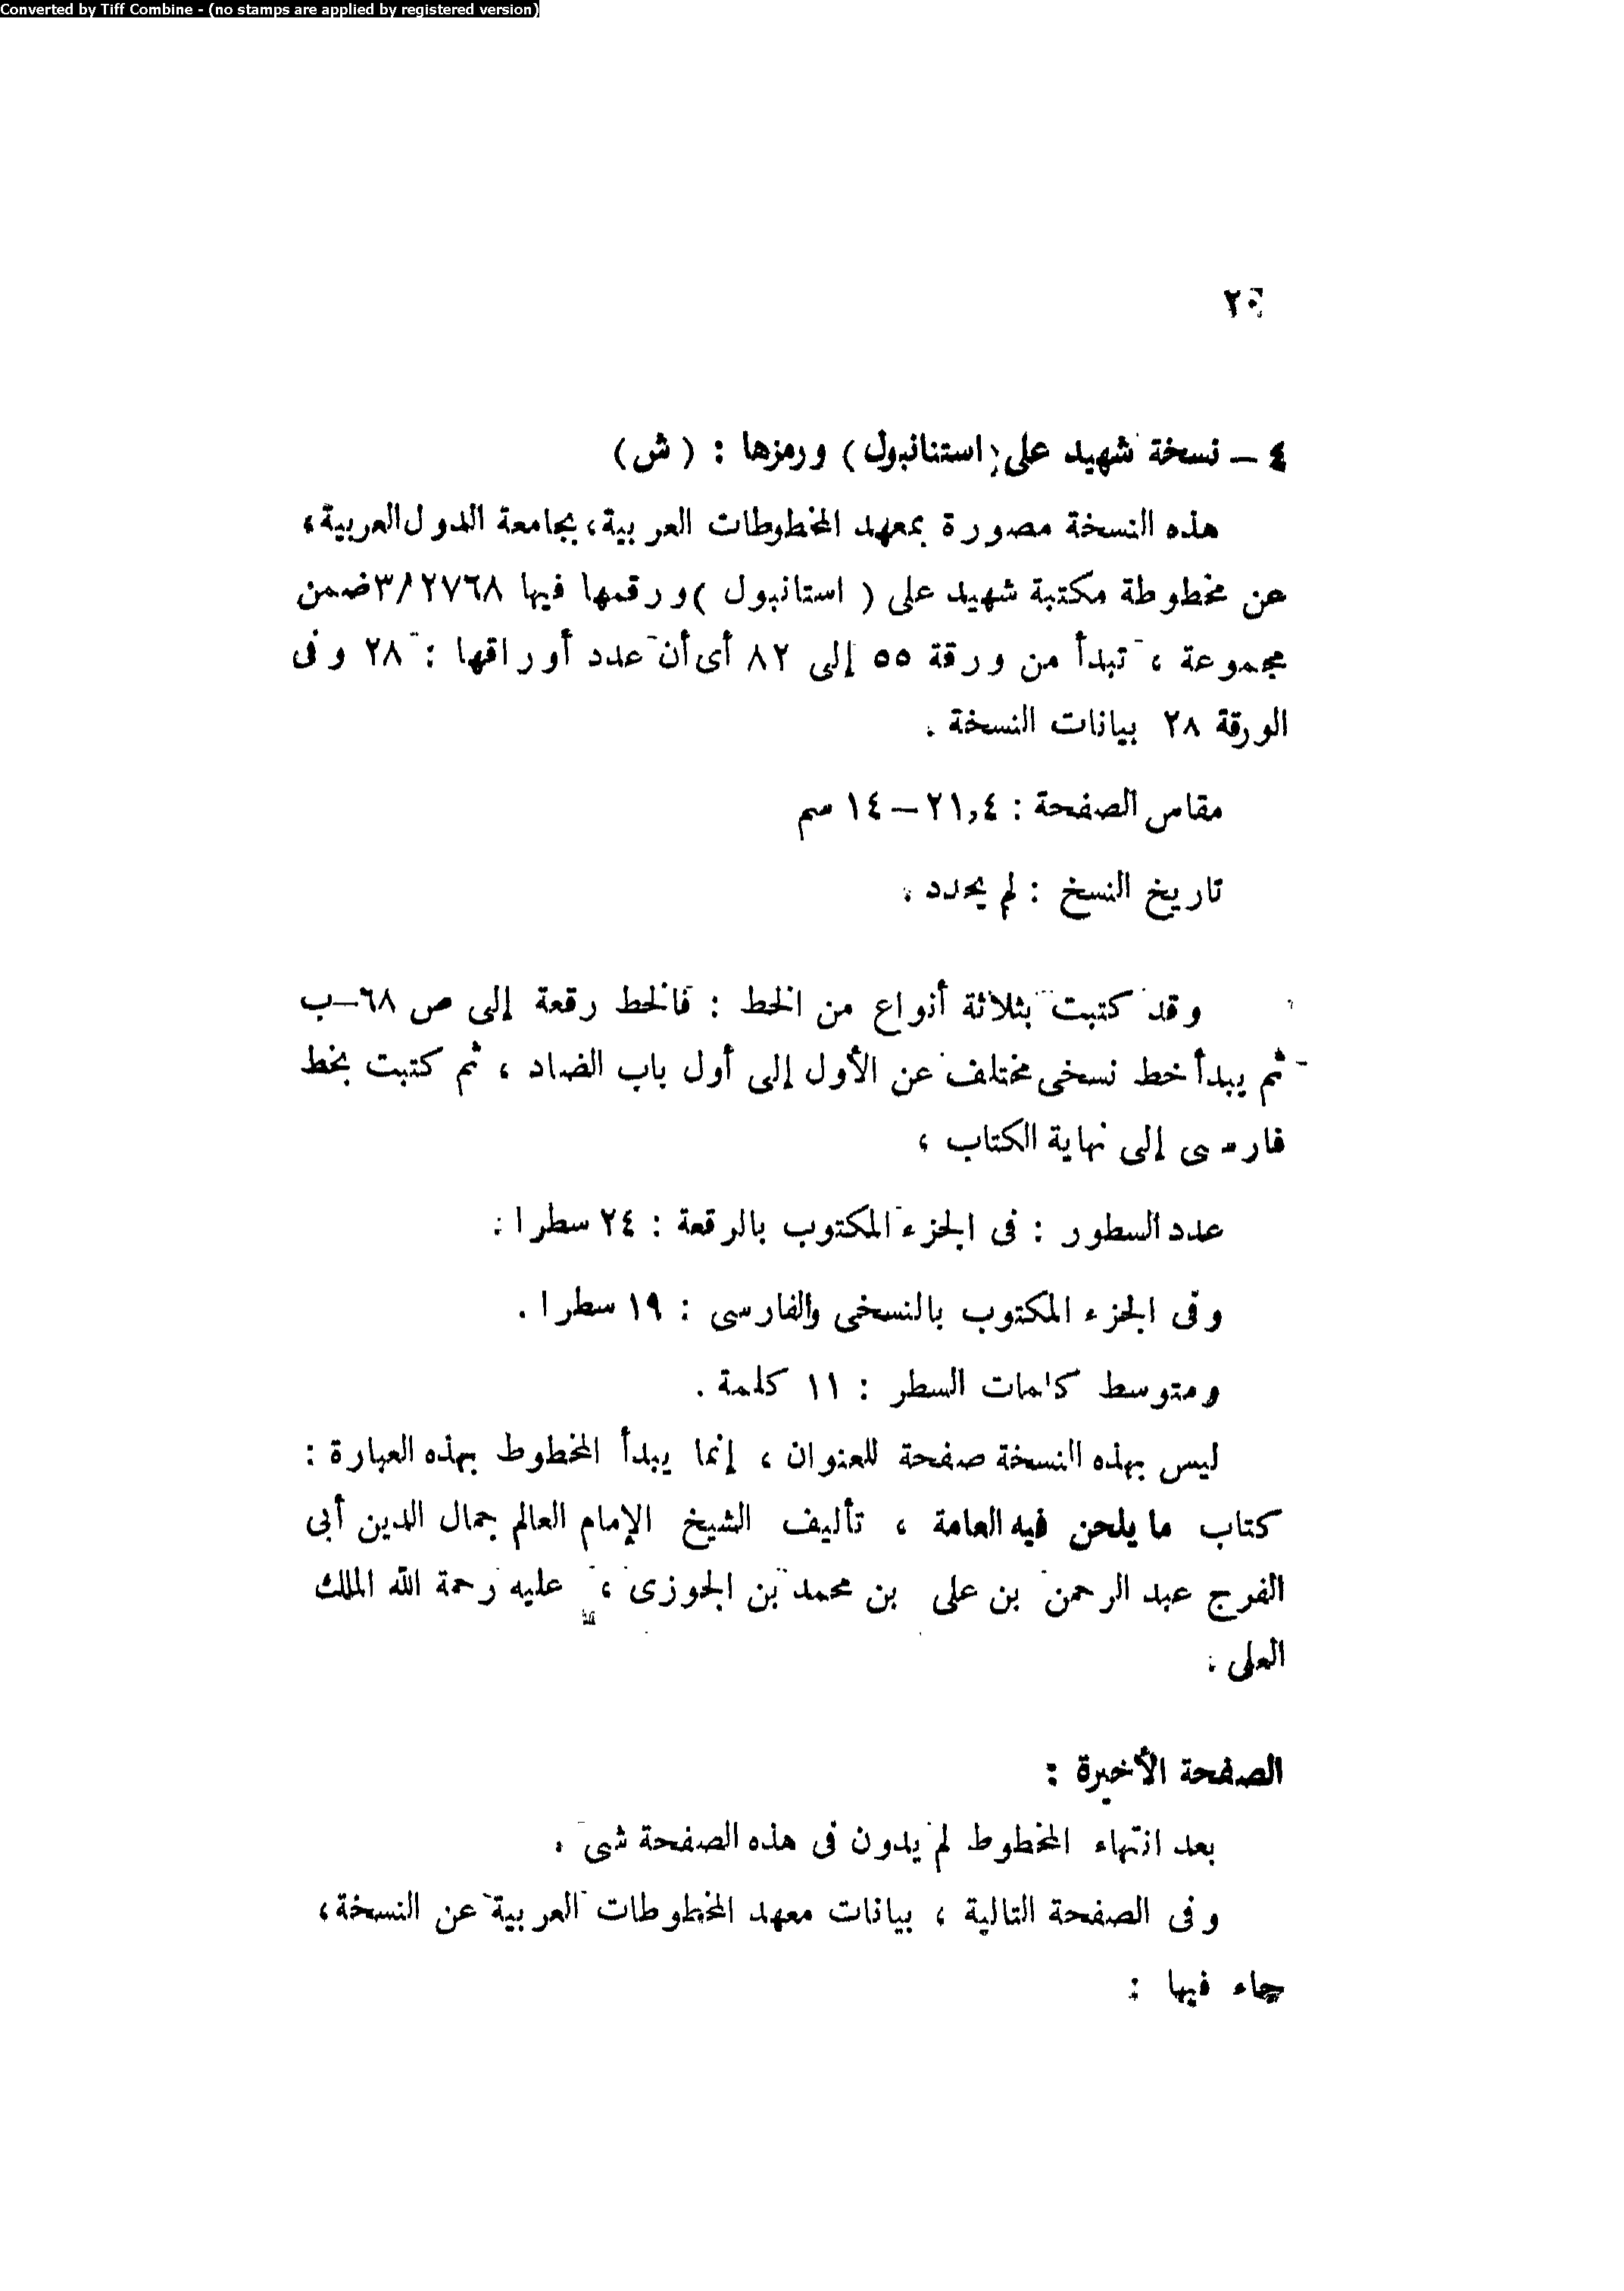 Converted by Tiff Combine - (no stamps are applied by registered version)
٢٠
٤ – نسخة شهيد على (استنانبول) ورمزها : (ش)
هذه النسخة مصورة بمعهد المخطوطات العربية، بجامعة الدول العربية،
عن مخطوطة مكتبة شهيد على ( استانبول ) ورقمها فيها ٣/٢٧٦٨ ضمن
مجموعة ، تبدأ من ورقة ٥٥ إلى ٨٢ أى أن عدد أوراقها : ٢٨ وفى
الورقة ٢٨ بيانات النسخة .
مقاس الصفحة : ٢١,٤ – ١٤ سم
تاريخ النسخ : لم يحدد .
وقد كتبت بثلاثة أنواع من الخط : فالخط رقعة إلى ص ٦٨–ب
ثم يبدأ خط نسخى مختلف عن الأول إلى أول باب الضاد ، ثم كتبت بخط
فارسى إلى نهاية الكتاب ،
عدد السطور : فى الجزء المكتوب بالرقعة : ٢٤ سطرا .
وفى الجزء المكتوب بالنسخى والفارسى : ١٩ سطرا .
ومتوسط كلمات السطر : ١١ كلمة .
ليس بهذه النسخة صفحة للعنوان ، إنما يبدأ المخطوط بهذه العبارة :
كتاب ما يلحن فيه العامة ، تأليف الشيخ الإمام العالم جمال الدين أبى
الفرج عبد الرحمن بن على بن محمد بن الجوزى ، عليه رحمة الله الملك
العلى .
الصفحة الأخيرة :
بعد انتهاء المخطوط لم يدون فى هذه الصفحة شى .
وفى الصفحة التالية ، بيانات معهد المخطوطات العربية عن النسخة،
جاء فيها :